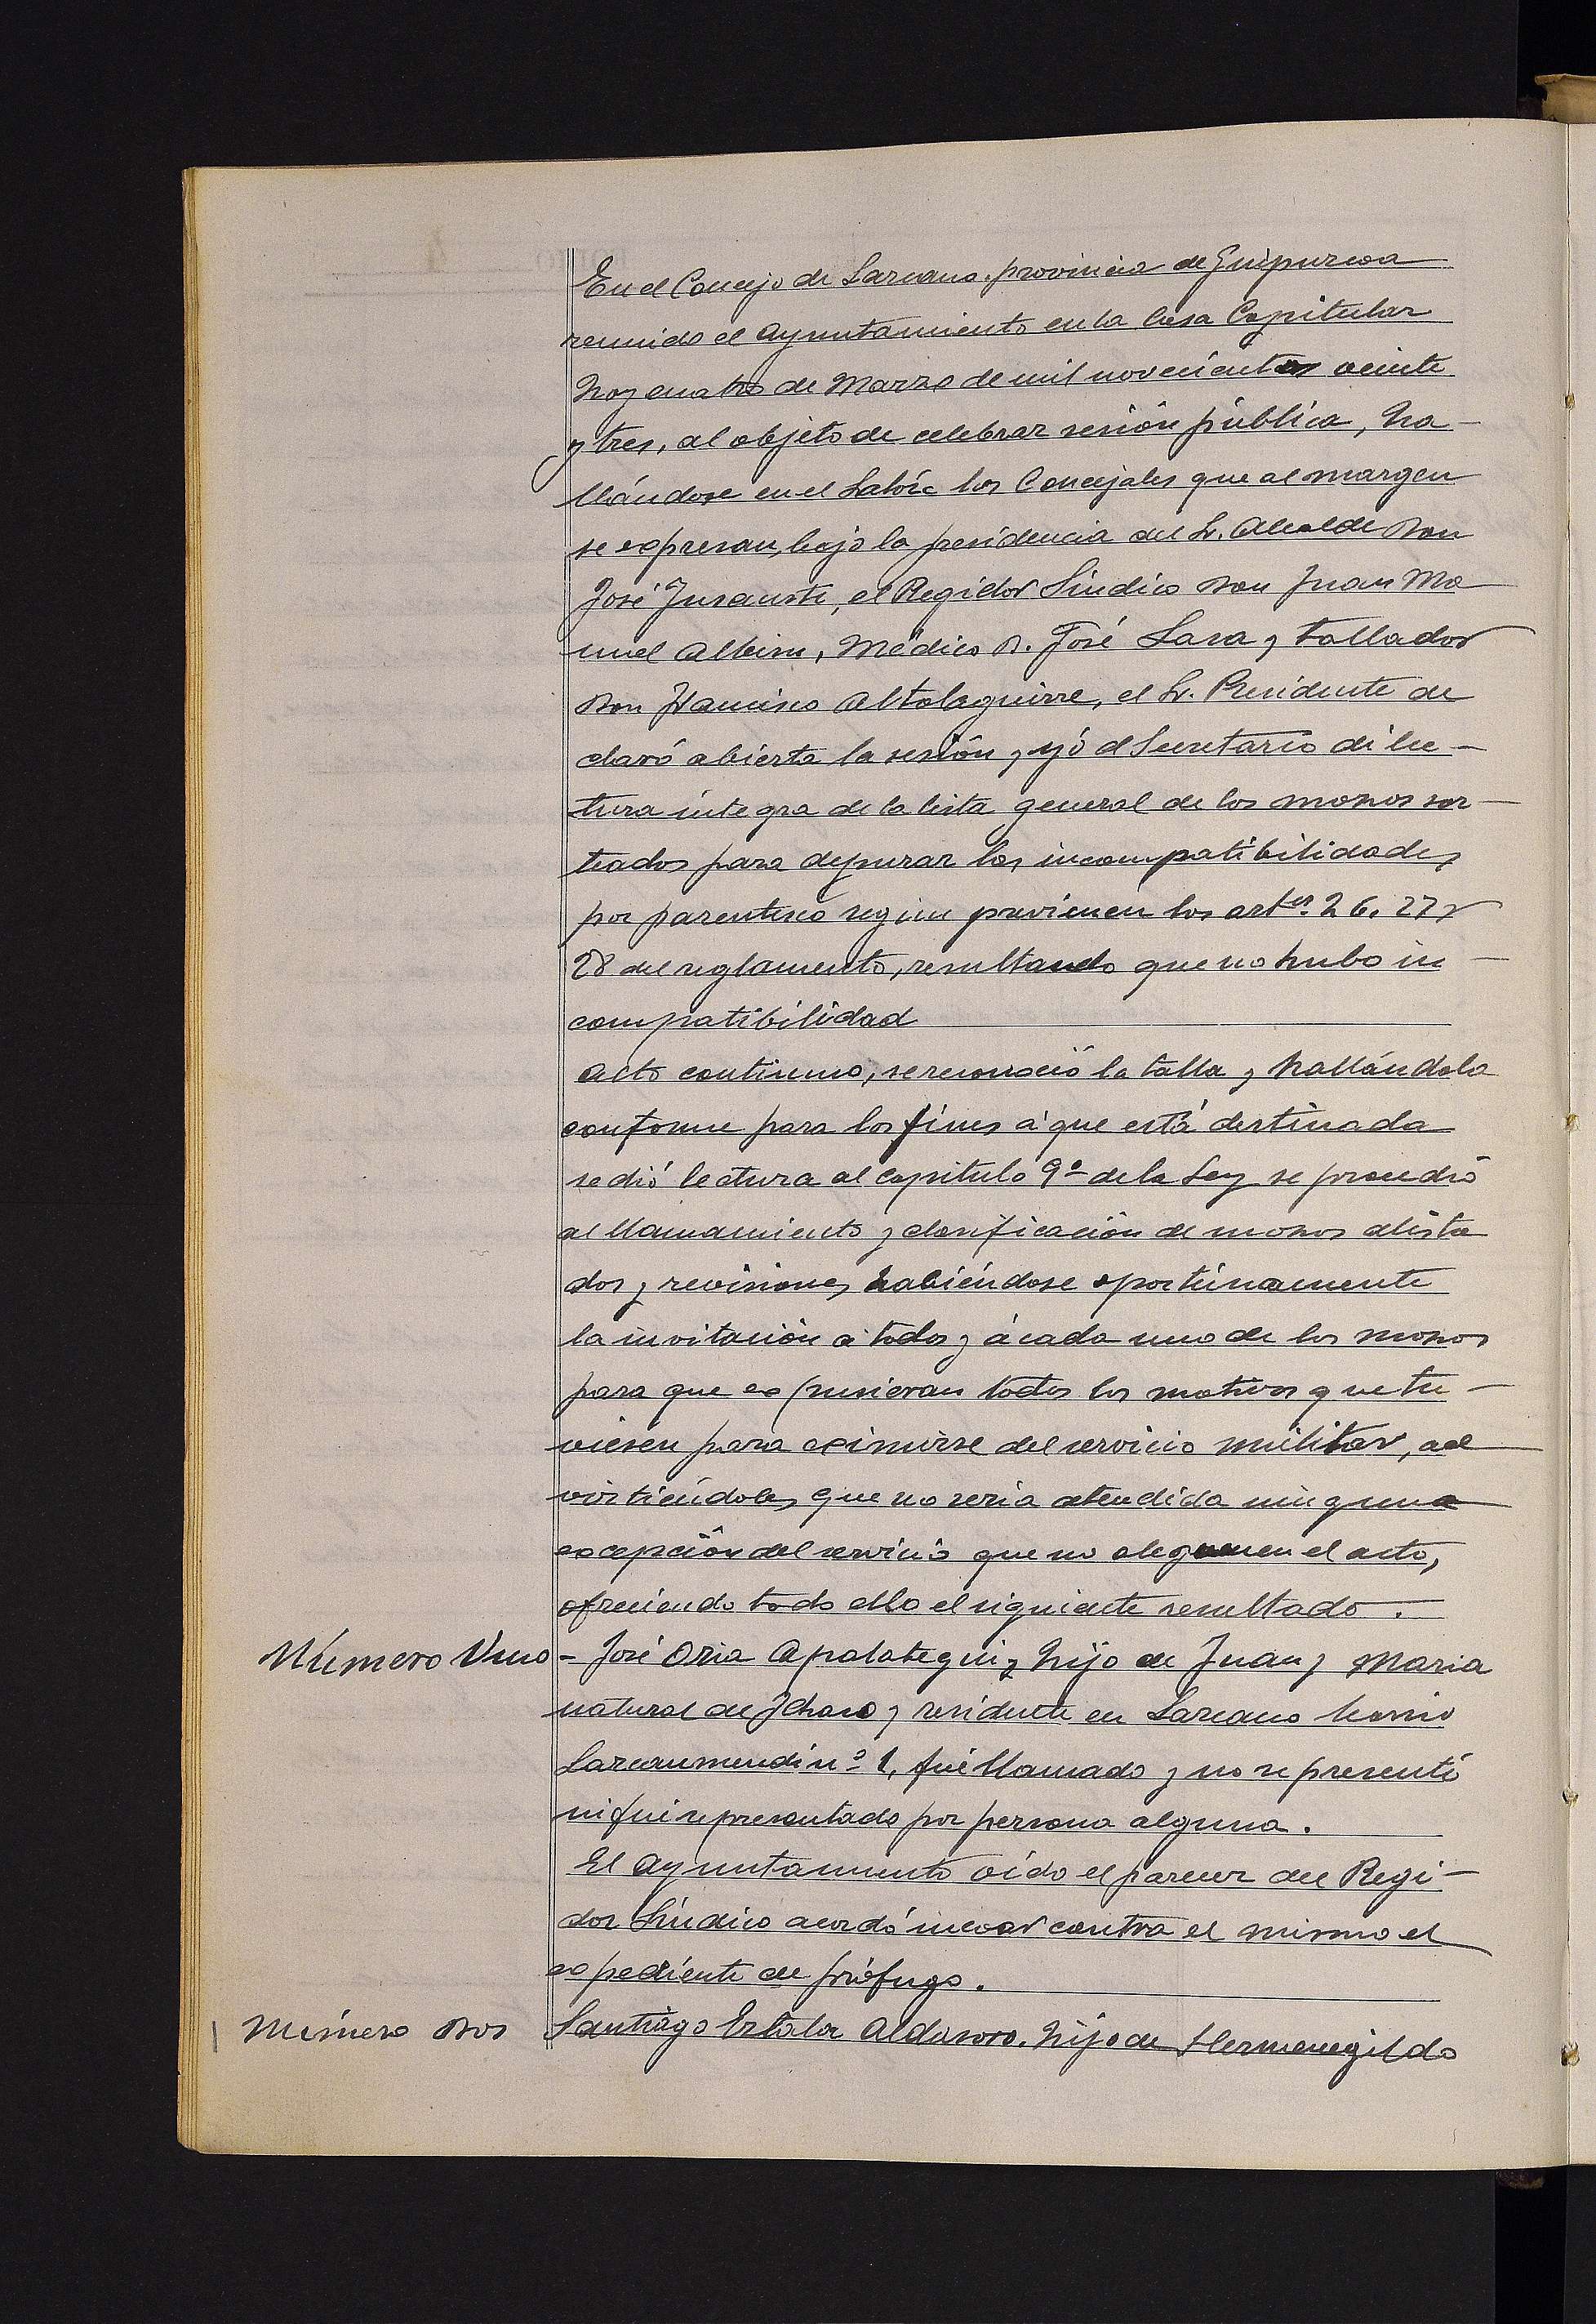 En el Concejo de Lazcano, provincia de Guipúzcoa
reunido el Ayuntamiento en la Casa Capitular
hoy cuatro de Marzo de mil novecientos veinte
y tres, al objeto de celebrar sesión pública, ha-
llándose en el Salón los Concejales que al margen
se expresan, bajo la presidencia del Sr. Alcalde Don
José Insausti, el Regidor Síndico Don Juan Ma
nuel Albisu, Médico D. José Lasa y tallador
Don Francisco Altolaguirre, el Sr. Presidente de
claró abierta la sesión y yó el Secretario di lec-
tura íntegra de la lista general de los mozos sor-
teados para depurar las incompatibilidades
por parentesco segun previenen los artes. 26, 27 y
28 del reglamento, resultando que no hubo in-
compatibilidad
Acto continuo, se reconoció la talla y hallándola
conforme para los fines á que está destinada
se dió lectura al capitulo 9º de la Ley se procedió
al llamamiento y clasificación de mozos alista
dos y revisiones habiéndose oportunamente
la invitación a todos y á cada uno de los mozos
para que expusieran todos los motivos que tu-
viesen para eximirse del servicio militar, ad
virtiéndoles que no seria atendida ninguna
excepción del servicio que no aleguen en el acto,
ofreciendo todo ello el siguiente resultado.
Número Uno - José Oria Apalategui, hijo de Juan y Maria
natural de Ichaso y residente en Lazcano barrio
Lazcaumendi nº 1, fué llamado y no se presentó
ni fué representado por persona alguna.
El Ayuntamiento oído el parecer del Regi-
dor Síndico acordó incoar contra el mismo el
expediente de prófugo.
Número Dos Santiago Estala Aldasoro, hijo de Hermenegildo